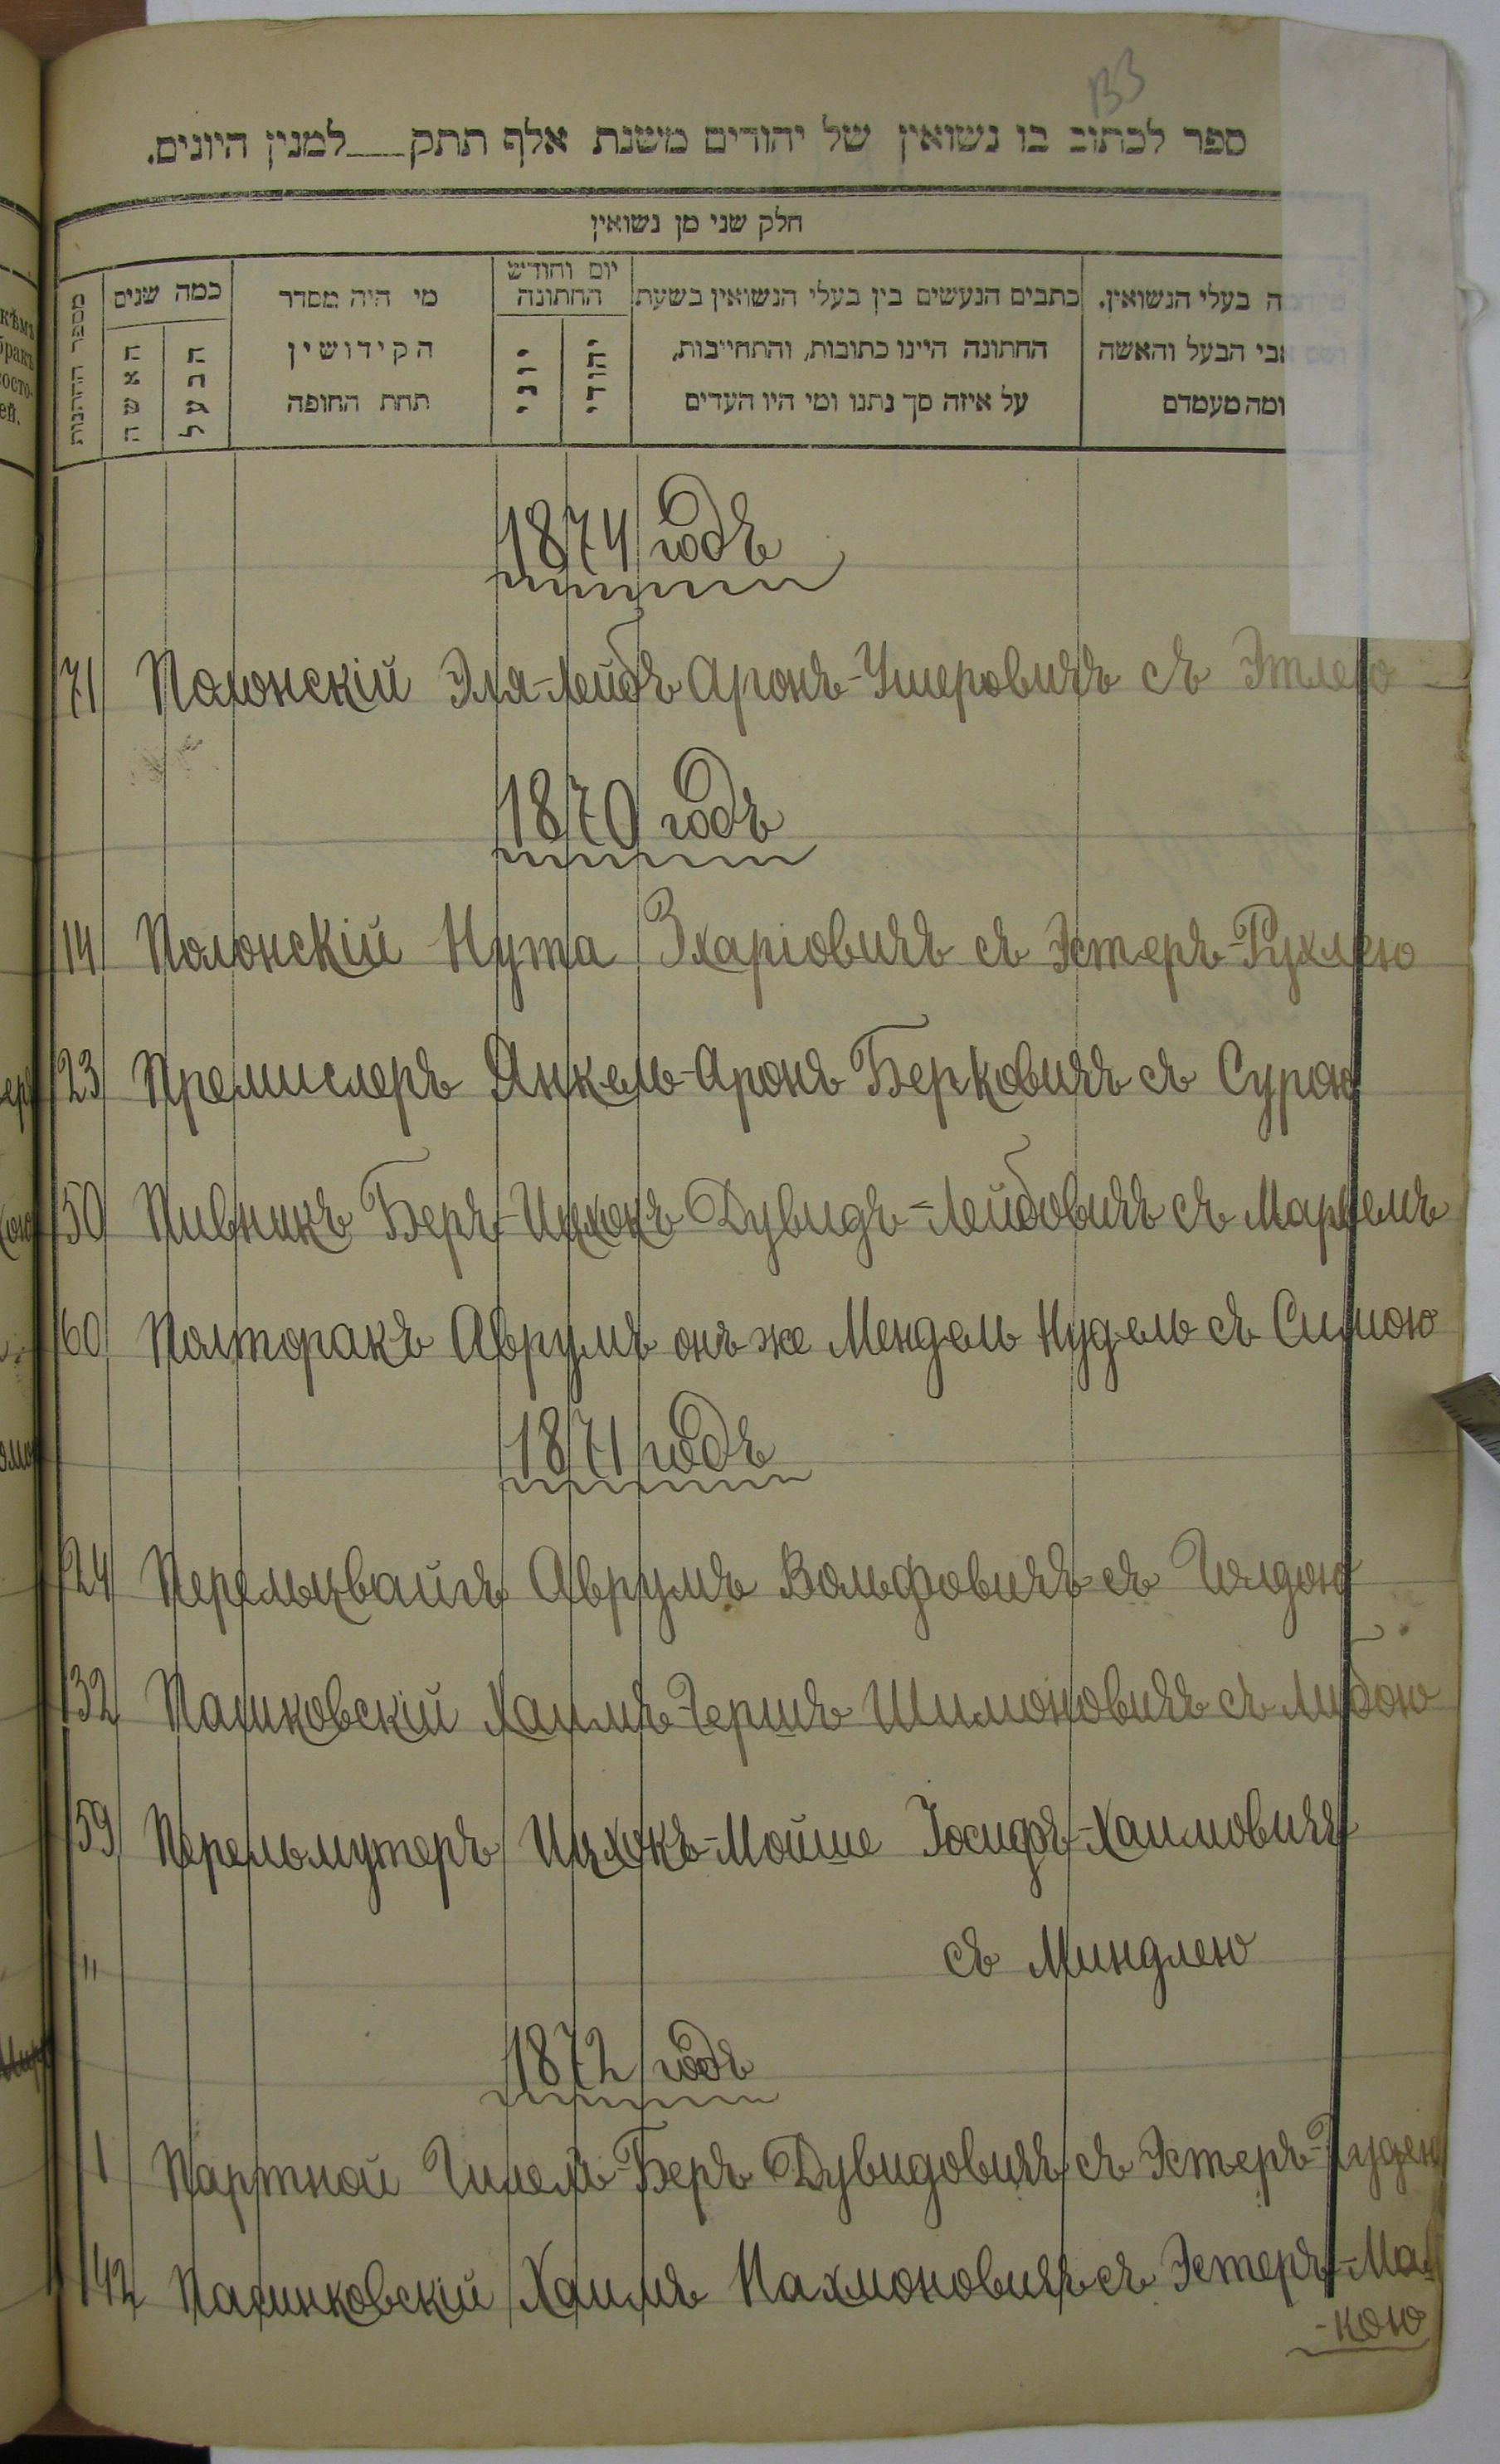 ВЗ
ספר לכתוב בו נשואין של יהודים משנת אלף תתק___למנין היונים.
חלק שני מן נשואין
מספר החתונות
כמה שנים
האשה
הבעל
מי היה מסדר
הקידושין
תחת החופה
יום וחודש
החתונה
יוני
יהודי
כתבים הנעשים בין בעלי הנשואין בשעת
החתונה היינו כתובות, והתחייבות,
על איזה סך נתנו ומי היו העדים
בעלי הנשואין.
אבי הבעל והאשה
ומה מעמדם
1874 годъ
71 Полонскій Эля-Лейбъ Аронъ-Ушеровичъ съ Этлею
1870 годъ
14 Полонскій Нута Зхаріовичъ съ Эстеръ-Рухлею
23 Премислеръ Янкель-Аронъ Берковичъ съ Сурою
50 Пивникъ Беръ-Ицхокъ Дувидъ-Лейбовичъ съ
60 Полторакъ Аврумъ онъ же Мендель Нудель съ Симою
1871 годъ
24 Перельцвайгъ Аврумъ Вольфовичъ съ Голдою
32 Пашковскій Хаимъ-Гершъ Шимоновичъ съ Либою
59 Перельмутеръ Ицхокъ-Мойше Іосифъ-Хаимовичъ
" съ Миндлею
1872 годъ
1 Портной Беръ Дувидовичъ съ Эстеръ-
42 Хаимъ Нахмоновичъ съ Эстеръ-Мал
-кою